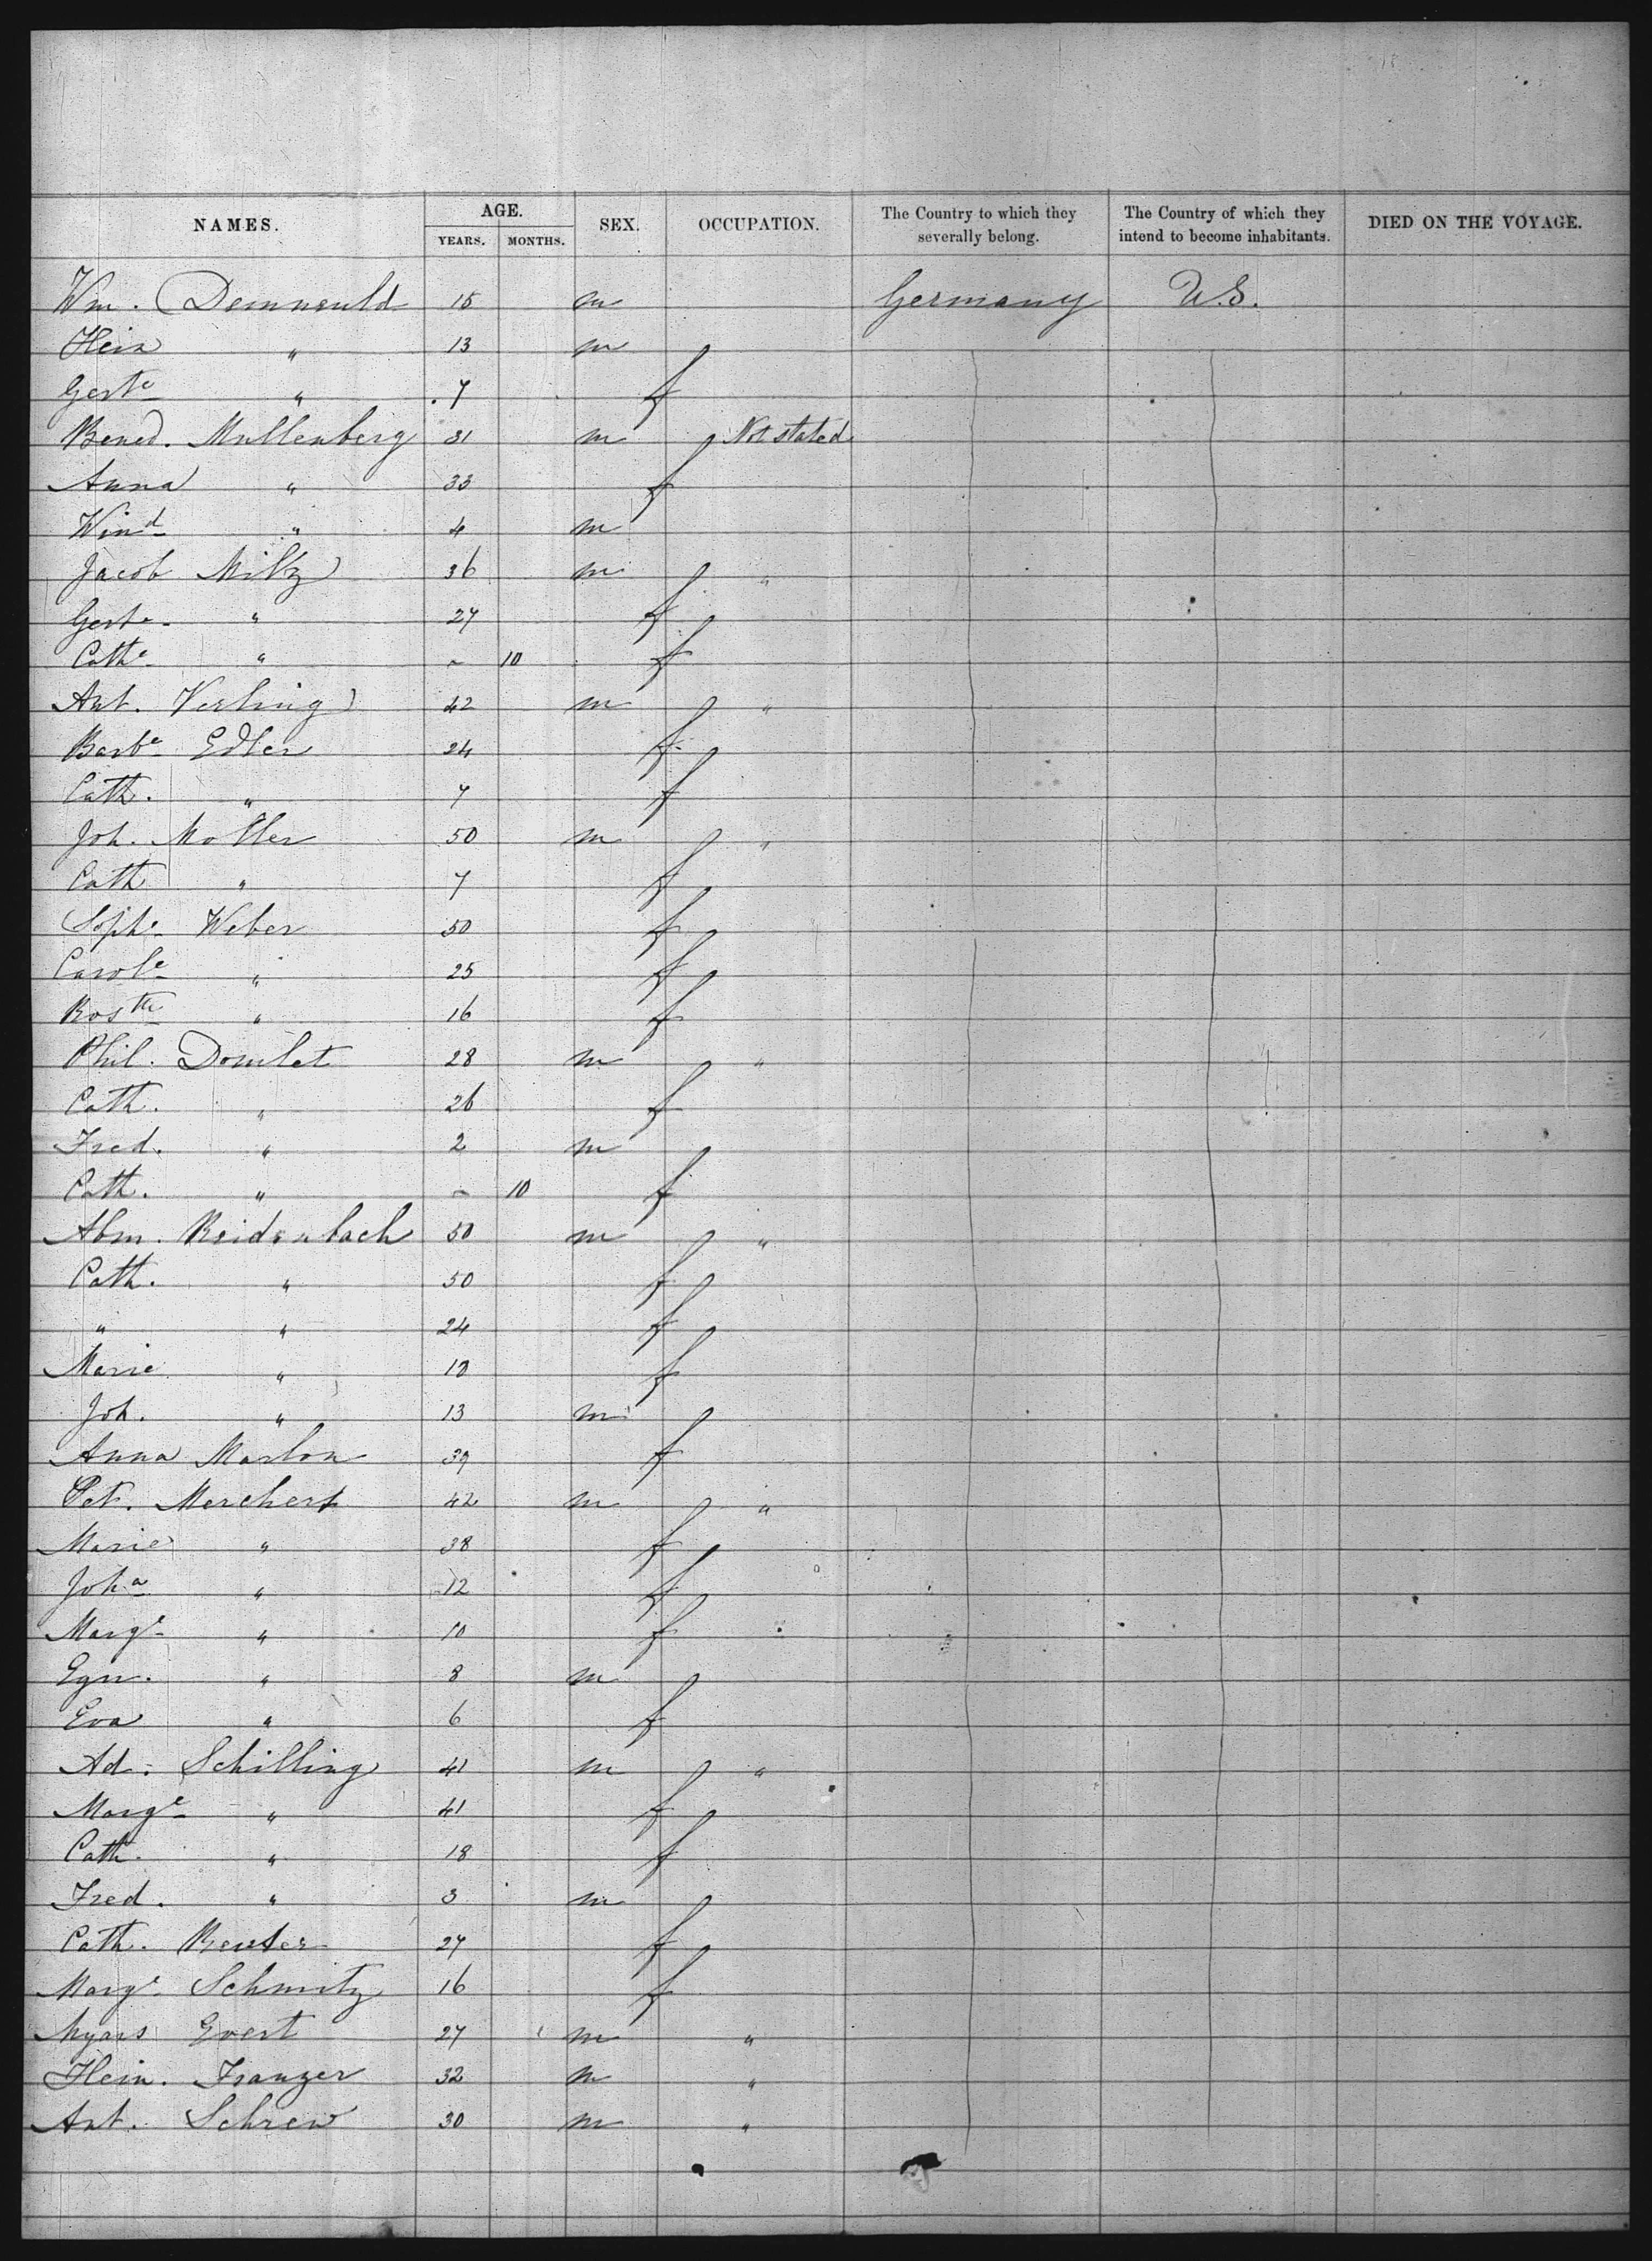 NAMES. AGE. YEARS. MONTHS. SEX. OCCUPATION. The Country to which they severally belong. The Country of which they intend to become inhabitants. DIED ON THE VOYAGE.
Wm. Demnauld 15 m Germany U.S.
Hein " 13 m
Gerte " 7 f
Bened. Mullenberg 31 m Not stated
Anna " 33 f
Wind " 4 m
Jacob Miltz 36 m "
Gerte " 27 f
Cathe " - 10 f
Ant. Verling 42 m "
Barbe Edler 24 f
Cath. " 7 f
Joh. Moller 50 m "
Cath " 7 f
Sophe Weber 50 f
Carole " 25 f
Rosthe " 16 f
Phil. Domlet 28 m "
Cath. " 26 f
Fred. " 2 m
Cath. " - 10 f
Abm. Reidenbach 50 m "
Cath. " 50 f
" " 24 f
Marie " 10 f
Joh. " 13 m
Anna Marlon 39 f
Pet. Merchert 42 m "
Marie " 38 f
Joha " 12 f
Marge " 10 f
Egn. " 8 m
Eva " 6 f
Ad. Schilling 41 m "
Marge " 41 f
Cath. " 18 f
Fred. " 3 m
Cath. Reuter 27 f
Marge Schmitz 16 f
Evert 27 m "
Hein. Franzer 32 m "
Ant. Schrew 30 m "